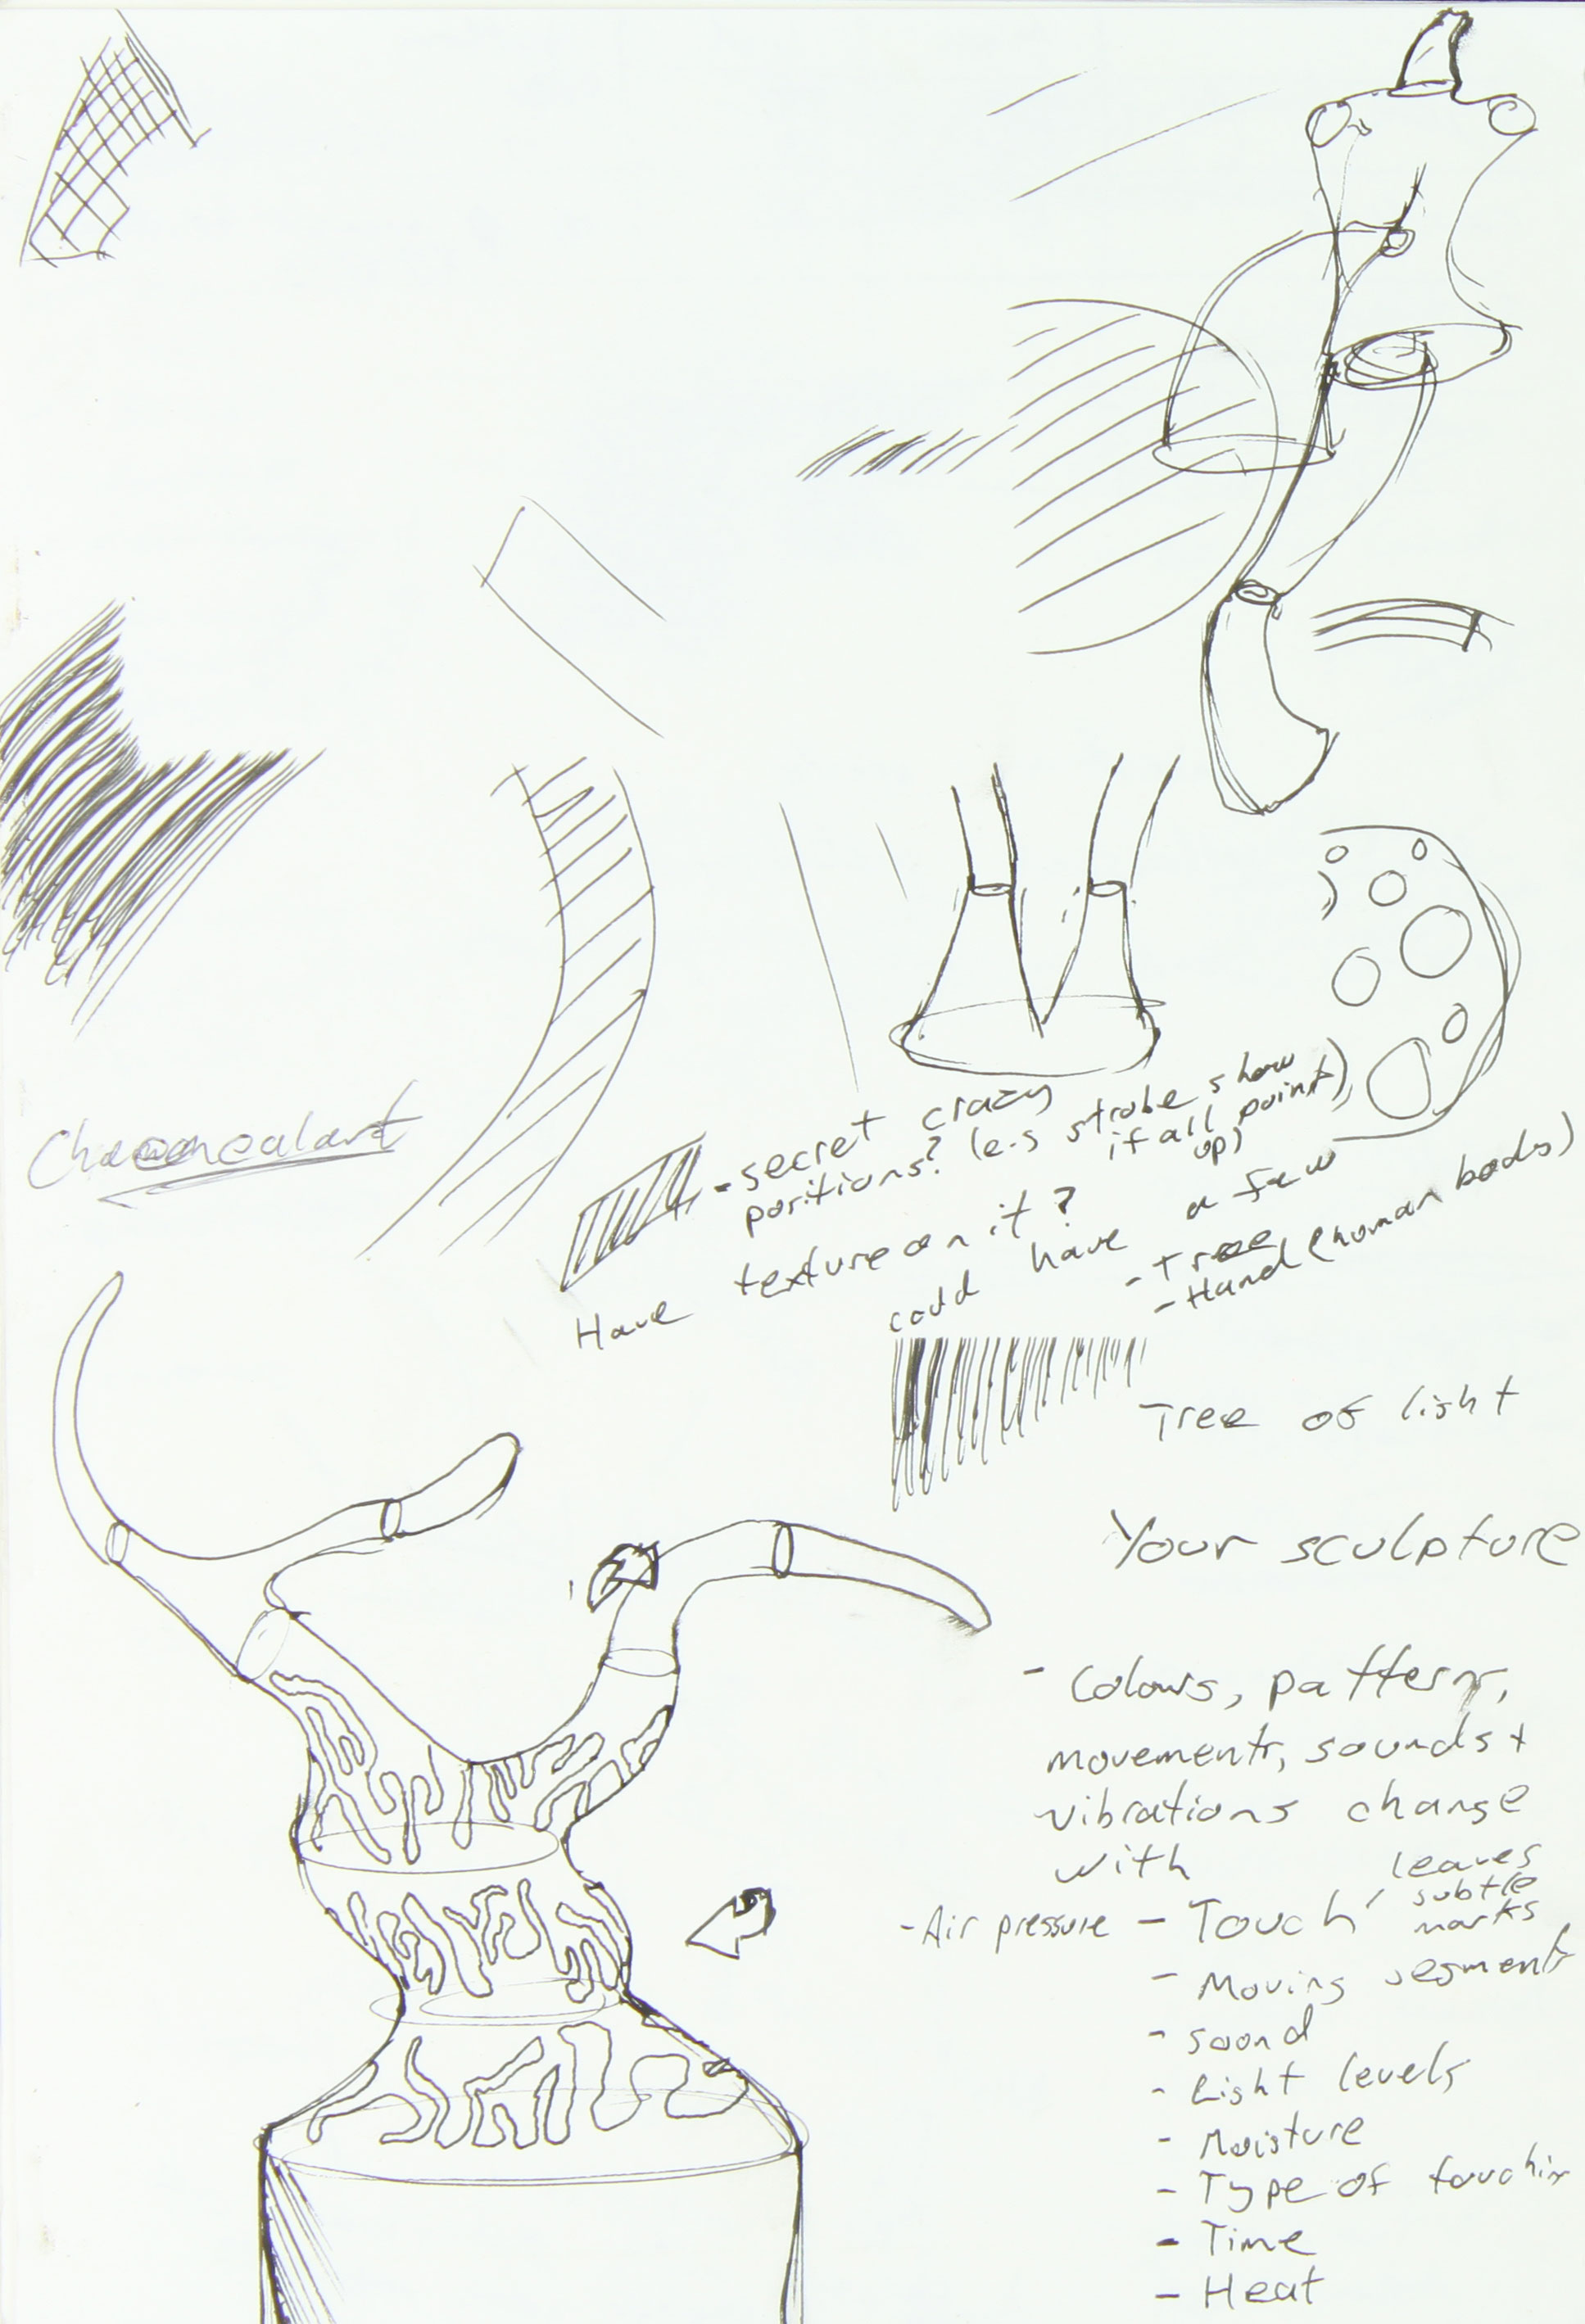 - secret crazy
positions? (e.g strobe show
if all point)
up)
Have texture on it?
could have a few
- Tree
- Hand (human bods)
Tree of light
Your sculpture
- Colours, patterns,
movements, sounds +
vibrations change
with
- Air pressure - Touch, leaves
subtle
marks
- Moving segments
- sound
- Light levels
- Moisture
- Type of touchin
- Time
- Heat